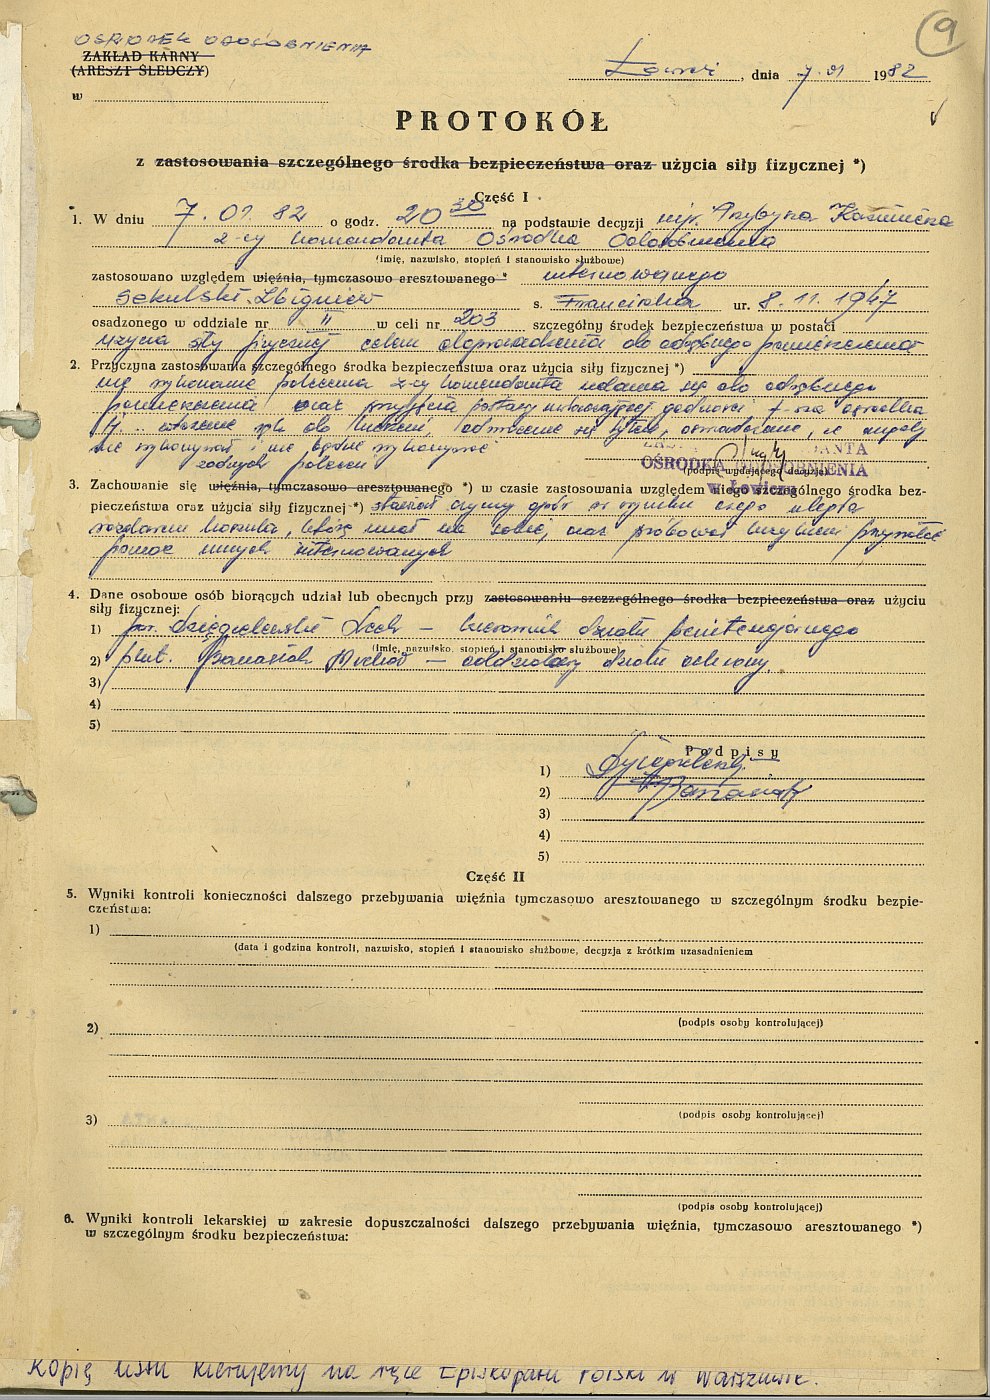 9
OŚRODEK ODOSOBNIENIA
ZAKŁAD KARNY
(ARESZT ŚLEDCZY)
w
Łowicz, dnia 7.01 1982
PROTOKÓŁ
z zastosowania szczególnego środka bezpieczeństwa oraz użycia siły fizycznej *)
Część I
1. W dniu 7.01.82 o godz. 20 30 na podstawie decyzji mjr. Kazimierza
z-cy komendanta Ośrodka Odosobnienia
(imię, nazwisko, stopień i stanowisko służbowe)
zastosowano względem więźnia, tymczasowo aresztowanego * internowanego
Sekulski Zbigniew s. Franciszka ur. 8.11.1947
osadzonego w oddziale nr II w celi nr 203 szczególny środek bezpieczeństwa w postaci
użycia siły fizycznej celem doprowadzenia do odrębnego pomieszczenia
2. Przyczyna zastosowania szczególnego środka bezpieczeństwa oraz użycia siły fizycznej *)
nie wykonanie polecenia z-cy komendanta udania się do odrębnego
pomieszczenia oraz przyjęcia postawy uwłaczającej godności f-sza ośrodka
tj. włożenie rąk do kieszeni, odwrócenie się tyłem, oświadczenie, że
nie wykonywał i nie będzie wykonywać
żadnych poleceń
ANTA
OŚRODKA ODOSOBNIENIA
w Łowiczu
(podpis wydającego decyzję)
3. Zachowanie się więźnia, tymczasowo aresztowanego *) w czasie zastosowania względem niego szczególnego środka bez-
pieczeństwa oraz użycia siły fizycznej *) stawiał czynny opór w wyniku czego uległa
rozdarciu koszula, którą miał na sobie, oraz próbował krzykiem przywołać
pomoc innych internowanych
4. Dane osobowe osób biorących udział lub obecnych przy zastosowaniu szczególnego środka bezpieczeństwa oraz użyciu
siły fizycznej:
1) por. Dzięgielewski Lech — kierownik działu penitencjarnego
(imię, nazwisko, stopień i stanowisko służbowe)
2) plut. Banasiak Michał — oddziałowy działu ochrony.
3)
4)
5)
Podpisy
1)
2) Banasiak
3)
4)
5)
Część II
5. Wyniki kontroli konieczności dalszego przebywania więźnia tymczasowo aresztowanego w szczególnym środku bezpie-
czeństwa:
1)
(data i godzina kontroli, nazwisko, stopień i stanowisko służbowe, decyzja z krótkim uzasadnieniem
(podpis osoby kontrolującej)
2)
(podpis osoby kontrolującej)
3)
(podpis osoby kontrolującej)
6. Wyniki kontroli lekarskiej w zakresie dopuszczalności dalszego przebywania więźnia, tymczasowo aresztowanego *)
w szczególnym środku bezpieczeństwa:
Kopię listu kierujemy na ręce Episkopatu Polski w Warszawie.